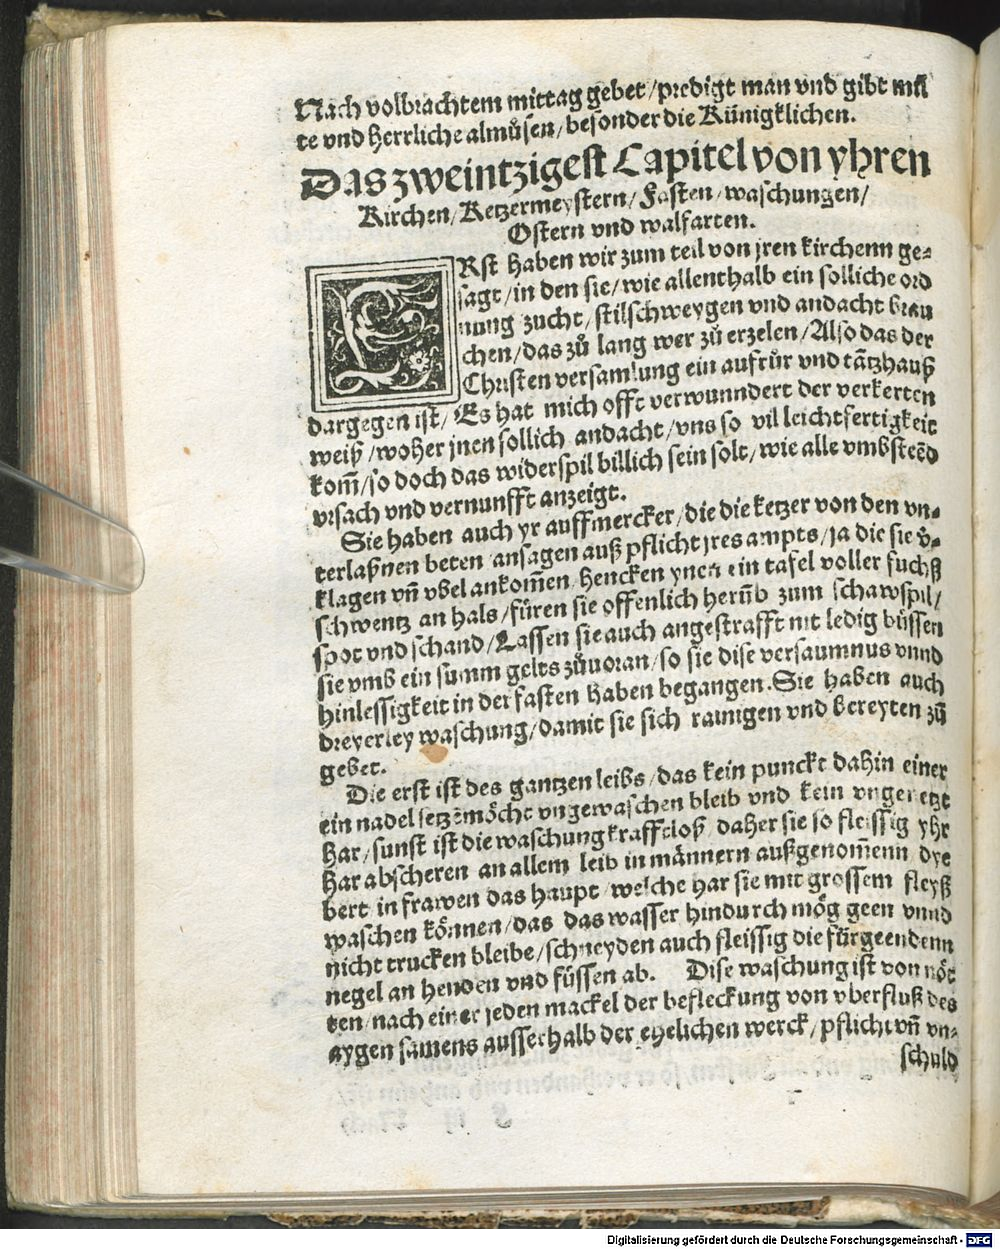 Nach volbrachtem mittag gebet / predigt man vnd gibt mil
te vnd herrliche almůsen / besonder die Künigklichen.
Das zweintzigest Capitel von yhren
Kirchen / Ketzermeystern / Fasten / waschungen /
Ostern vnd walfarten.
ERst haben wir zum teil von jren kirchenn ge-
sagt / in den sie / wie allenthalb ein solliche ord
nung zucht / stilschweygen vnd andacht brau
chen / das zů lang wer zů erzelen / Also das der
Christen versamlung ein aufrůr vnd tātzhauß
dargegen ist / Es hat mich offt verwunndert der verkerten
weiß / woher jnen sollich andacht / vns so vil leichtfertigkeit
kom̄ / so doch das widerspil billich sein solt / wie alle vmbstēd
vrsach vnd vernunfft anzeigt.
Sie haben auch yr auffmercker / die die ketzer von den vn-
terlaßnen beten ansagen auß pflicht jres ampts / ja die sie v̄-
klagen vn̄ vbel ankom̄en / hencken ynen ein tafel voller fuchß
schwentz an hals / füren sie offenlich herūb zum schawspil /
spot vnd schand / Lassen sie auch angestrafft nit ledig büssen
sie vmb ein summ gelts zůuoran / so sie dise versaumnus vnnd
hinlessigkeit in der fasten haben begangen. Sie haben auch
dreyerley waschung / damit sie sich rainigen vnd bereyten zů
gebet.
Die erst ist des gantzen leibs / das kein punckt dahin einer
ein nadel setzē möcht vngewaschen bleib vnd kein vngenetzt
har / sunst ist die waschung krafftloß daher sie so fleissig yhr
har abscheren an allem leib in männern außgenom̄enn dye
bert in frawen das haupt / welche har sie mit grossem fleyß
waschen können / das das wasser hindurch mög geen vnnd
nicht trucken bleibe / schneyden auch fleissig die fürgeendenn
negel an henden vnd füssen ab. Dise waschung ist von nöt
ten / nach einer jeden mackel der befleckung von vberfluß des
aygen samens ausserhalb der eyelichen werck / pflicht vn̄ vn-
schuld
Digitalisierung gefördert durch die Deutsche Forschungsgemeinschaft - DFG